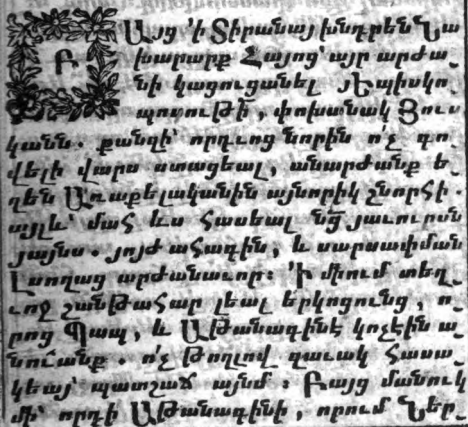 ԲԱյց ՚ի Տիրանայ խնդրեն Նա
խարարք Հայոց՝ այր արժա֊
նի կացուցանել յԵպիսկո֊
պոսութի՛, փոխանակ Յուս
կանն. քանզի՝ որդւոց նորին ո՛չ գո֊
վելի վարս ստացեալ, անարժանք ե֊
ղեն Առաքելականին այնորիկ շնորհի.
այլև՝ մահ ևս հասեալ նց՛ յաւուրսն
յայնս. յոյժ ահագին, և սարսափման
Լսողաց արժանաւոր։ ՚Ի միում տեղ֊
ւոջ շանթահար լեալ երկոցունց, ո֊
րոց Պապ, և Աթանագինէ կոչէին ա֊
նուանք. ո՛չ թողլով զաւակ հասա֊
կեայ՝ պատշաճ այնմ։ Բայց մանուկ
մի՝ որդի Աթանագինի, որում Ներ֊